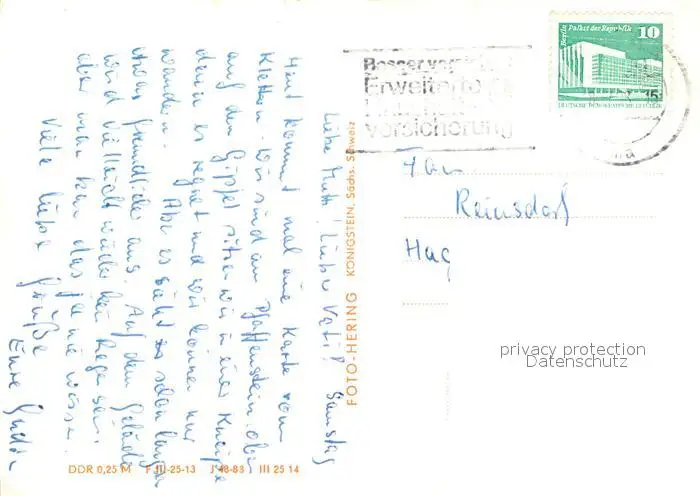 Liebe Mutti! Lieber Vati! Samstag
Heut kommt mal eine Karte vom
Klettern. Wir sind am Pfaffenstein. Aber
auf den Gipfel sitzen wir in einer Kneipe
denn es regnet und wir können nur
wandern. Aber es sieht so schon länger
etwas aus. Auf dem Gelände
wird vielleicht wieder kein Regen sein,
aber man kann das ja nie wissen.
Viele liebe Grüße
Eure
FOTO-HERING KÖNIGSTEIN, Sächs. Schweiz
DDR 0,25 M F III-25-13 J 48-83 III 25 14
Besser
Erweiterte
versicherung
Berlin Palast der Republik
10
DEUTSCHE DEMOKRATISCHE REPUBLIK
15
Fam
Reinsdorf
Hag
privacy protection
Datenschutz